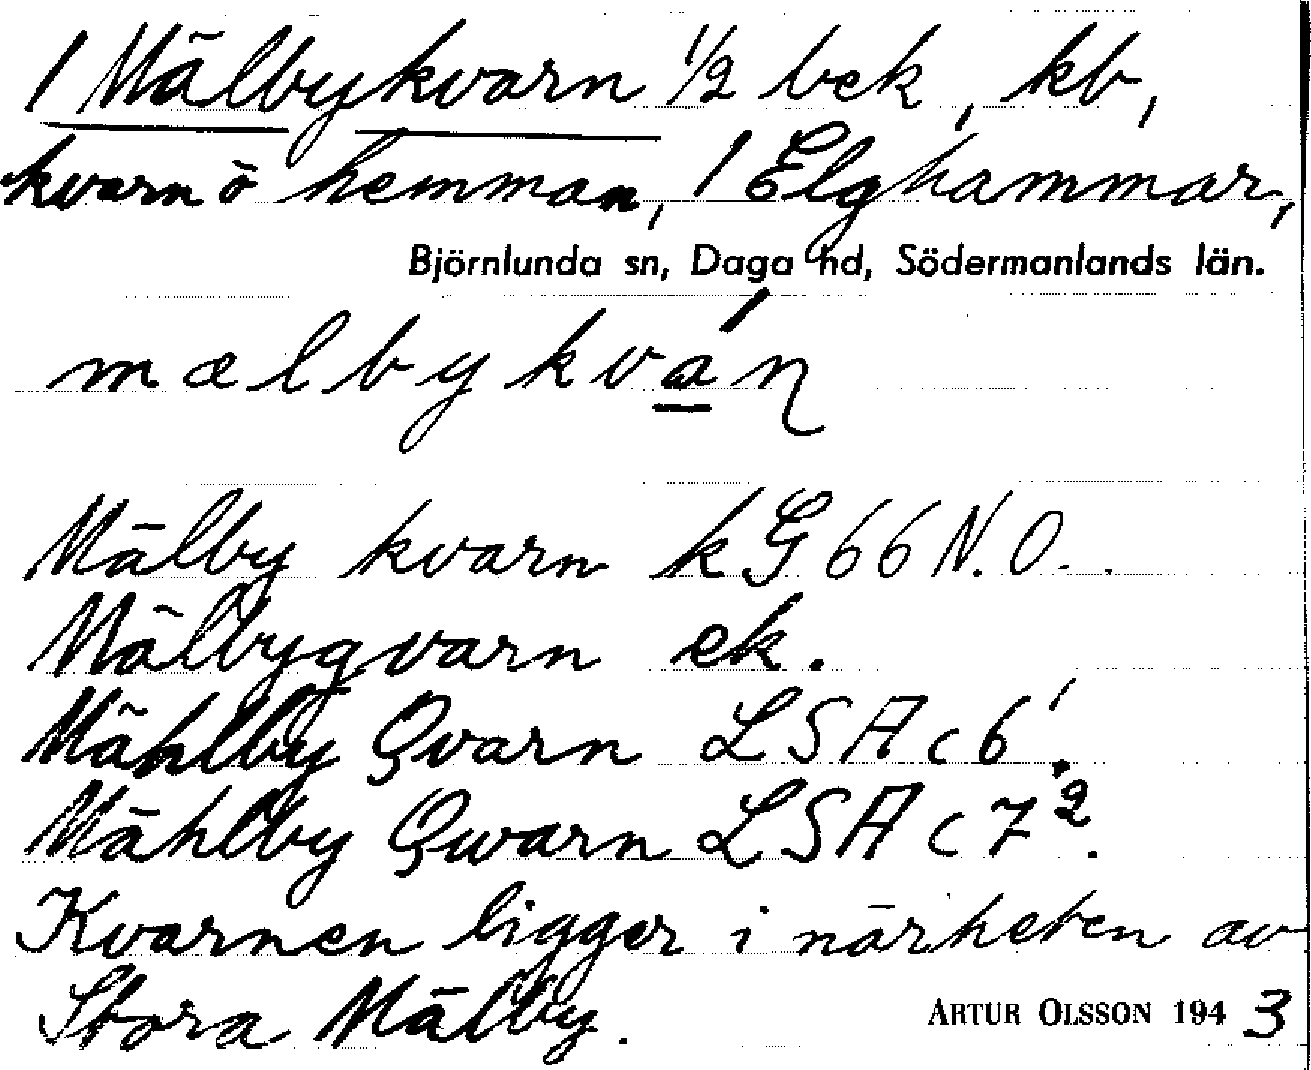 / Mälbykvarn ½ bek, kb,
kvarn o hemman, / Elghammar,
Björnlunda sn, Daga hd, Södermanlands län.
mælbykváɳ
Mälby kvarn kG 66 N.O.
Mälbyqvarn ek.
Mählby Qvarn LSA c6¹.
Mählby Qwarn LSA c7².
Kvarnen ligger i närheten av
Stora Mälby.
ARTUR OLSSON 1943